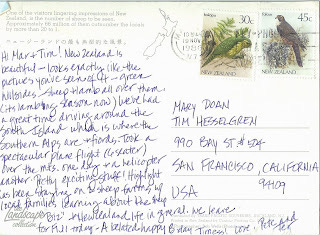 One of the visitors lingering impressions of New
Zealand is the number of sheep to be seen.
Approximately 66 million of them outnumber the locals
by more than 20 to one.
Hi Mary + Tim! New Zealand is
beautiful - looks exactly like the
pictures you've seen of it - green
hillsides - sheep + lamb all over them
(it's lambing season now) We've had
a great time driving around the
South Island which is where the
Southern Alps are + fjords. Took a
spectacular plane flight (6 seater)
over the mts. one day + a helicopter
another. Pretty exciting stuff! Highlight
has been staying on a sheep farm w/
local families learning about the sheep
"Biz" + NewZealand life in general. We leave
for Fiji today - A belated happy B'day Timeess! Love, Pete and
Kakapo
30c
NEW ZEALAND
45c
NEW ZEALAND
MARY DOAN
TIM HESSELGREN
990 BAY ST #504
SAN FRANCISCO, CALIFORNIA
94109
USA
Landscape
collection